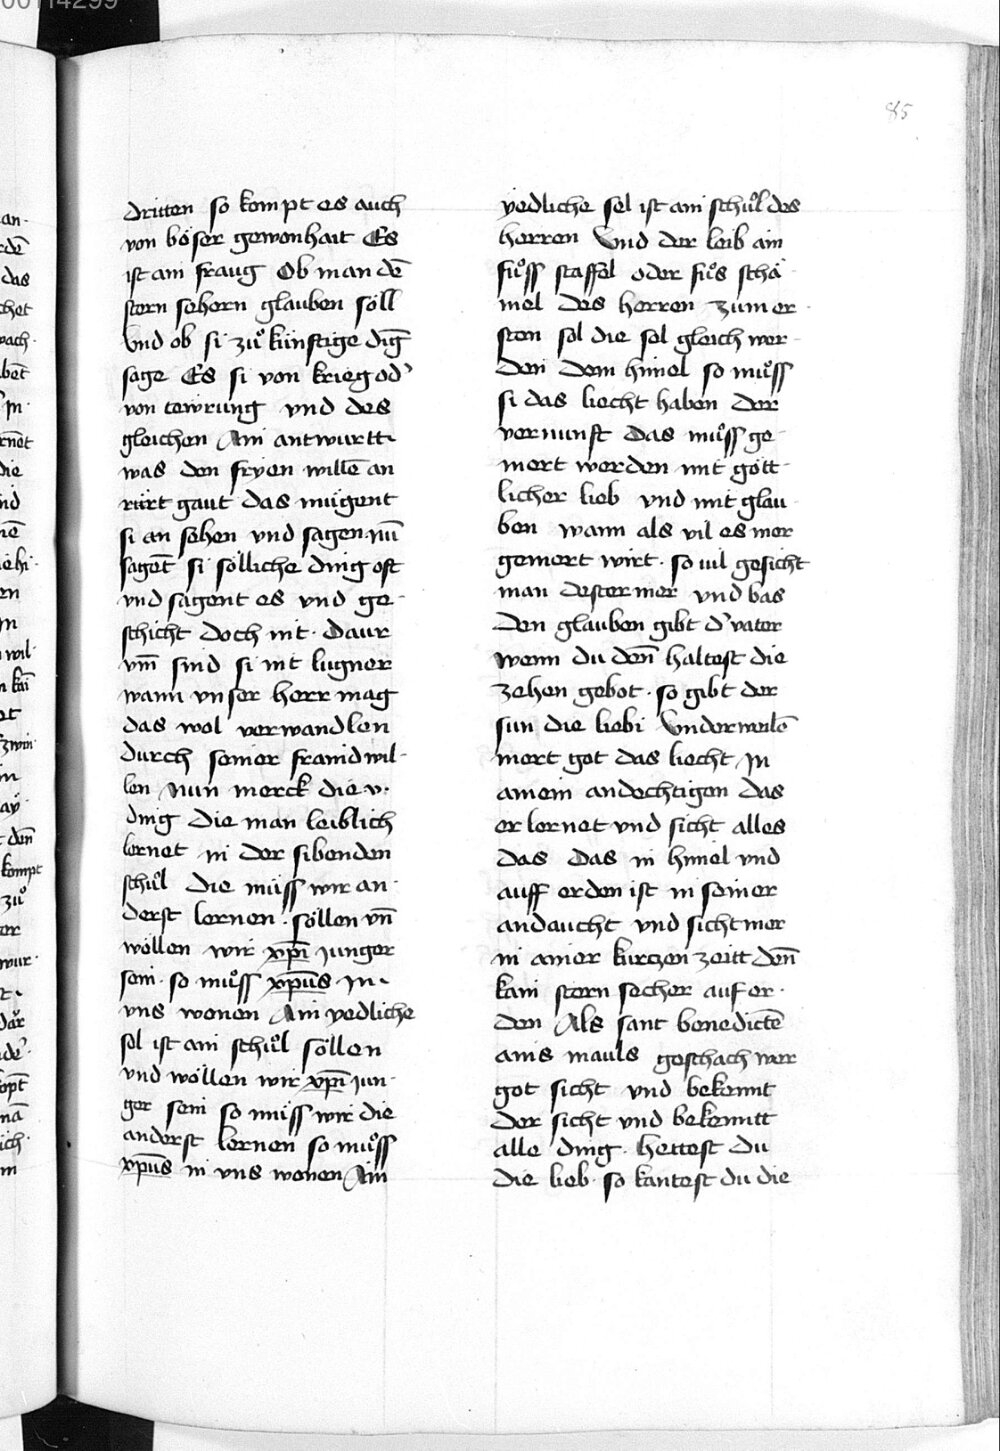 00114299
85
dritten so kompt es auch
von böser gewonhait Es
ist ain fraug Ob man dē
stern sehern glauben söll
Vnd ob si zuͦ künftige dīg
sage Es si von krieg od'
von tewrung vnd des
gleichen Ain antwurtt
was den fryen willē an
rürt gaut das mügent
si an sehen vnd sagen nū
sagēt si sölliche ding oft
vnd sagent es vnd ge-
schicht doch nit · Daur
vm̄ sind si nit lugner
wann vnser herr mag
das wol verwandlen
durch seiner fraind wil-
len Nun merck die v ·
ding die man leiblich
lernet in der sibenden
schuͦl die müss wir an-
derst lernen · söllen vn̄
wöllen wir xp̄i junger
sein · so muͦss xp̄us in
vns wonen Ain yedliche
sel ist ain schuͦl söllen
vnd wöllen wir xp̄i jun-
ger sein so müss wir die
anderst lernen so muͦss
xp̄us in vns wonen Ain
yedliche sel ist ain schuͦl des
herren Vnd der leib ain
fuͦss staffel oder fuͦs schä-
mel des herren zum er-
sten sol die sel gleich wer-
den dem himel so muͦss
si das liecht haben der
vernunft Das muͦss ge-
mert werden mit gött-
licher lieb vnd mit glau-
ben wann als vil es mer
gemert wirt · so vil gesicht
man dester mer vnd bas
Den glauben gibt d' vater
wenn du den̄ haltest die
zehen gebot · so gibt der
sun die liebi Vnderweilē
mert got das liecht In
ainem andechtigen das
er lernet vnd sicht alles
das Das in himel vnd
auff erden ist in seiner
andaucht vnd sicht mer
in ainer kurczen zeitt den̄
kain stern secher auf er-
den Als sant benedictē
ains mauls geschach wer
got sicht vnd bekennt
der sicht vnd bekenntt
alle ding · hettest du
die lieb · so kantest du die